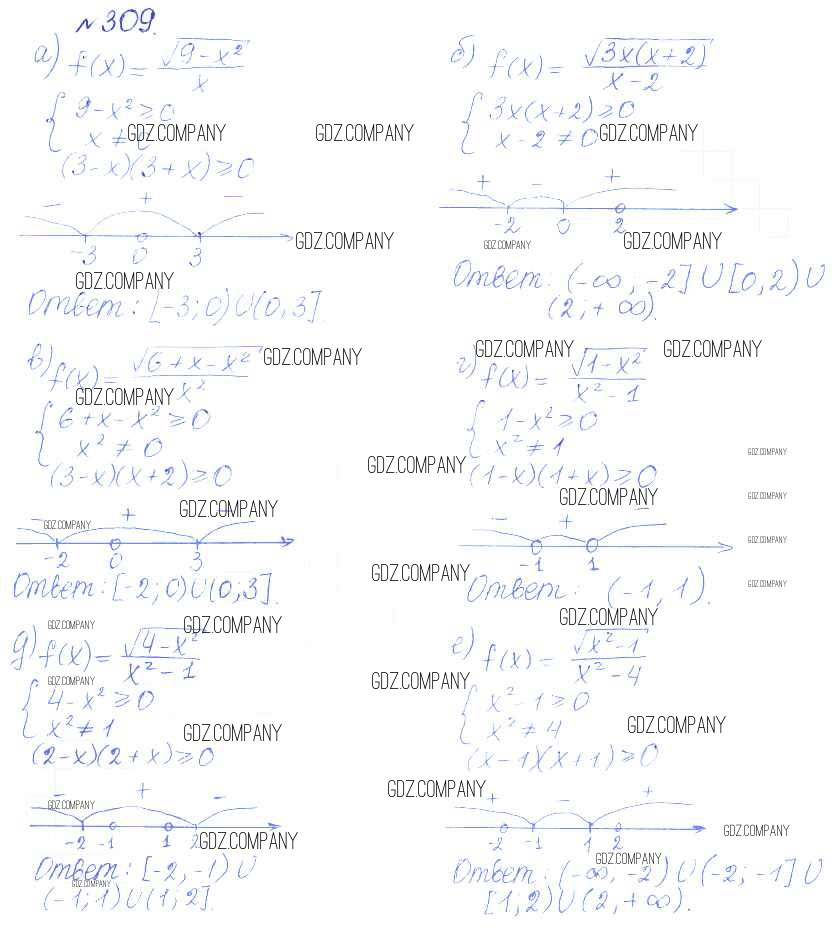 №309.
а) f(x) = √(9 - x²) / x
{ 9 - x² ≥ 0
x ≠ 0
GDZ.COMPANY
GDZ.COMPANY
(3 - x)(3 + x) ≥ 0
- + -
-3 0 3
GDZ.COMPANY
GDZ.COMPANY
Ответ: [-3; 0) ∪ (0, 3].
б) f(x) = √(3x(x + 2)) / (x - 2)
{ 3x(x + 2) ≥ 0
x - 2 ≠ 0
GDZ.COMPANY
+ - +
-2 0 2
GDZ.COMPANY
GDZ.COMPANY
Ответ: (-∞; -2] ∪ [0, 2) ∪
(2; +∞).
в) f(x) = √(6 + x - x²) / x²
GDZ.COMPANY
GDZ.COMPANY
{ 6 + x - x² ≥ 0
x² ≠ 0
(3 - x)(x + 2) ≥ 0
GDZ.COMPANY
GDZ.COMPANY
GDZ.COMPANY
- +
-2 0 3
GDZ.COMPANY
Ответ: [-2; 0) ∪ (0; 3].
г) f(x) = √(1 - x²) / (x² - 1)
GDZ.COMPANY
GDZ.COMPANY
{ 1 - x² ≥ 0
x² ≠ 1
GDZ.COMPANY
(1 - x)(1 + x) ≥ 0
GDZ.COMPANY
GDZ.COMPANY
- + -
-1 1
GDZ.COMPANY
GDZ.COMPANY
Ответ: (-1, 1).
GDZ.COMPANY
д) f(x) = √(4 - x²) / (x² - 1)
GDZ.COMPANY
GDZ.COMPANY
GDZ.COMPANY
{ 4 - x² ≥ 0
x² ≠ 1
GDZ.COMPANY
(2 - x)(2 + x) ≥ 0
- + -
GDZ.COMPANY
-2 -1 1 2
GDZ.COMPANY
Ответ: [-2, -1) ∪
GDZ.COMPANY
(-1; 1) ∪ (1; 2].
е) f(x) = √(x² - 1) / (x² - 4)
GDZ.COMPANY
{ x² - 1 ≥ 0
x² ≠ 4
GDZ.COMPANY
(x - 1)(x + 1) ≥ 0
GDZ.COMPANY
+ - +
-2 -1 1 2
GDZ.COMPANY
GDZ.COMPANY
Ответ: (-∞, -2) ∪ (-2; -1] ∪
[1; 2) ∪ (2, +∞).